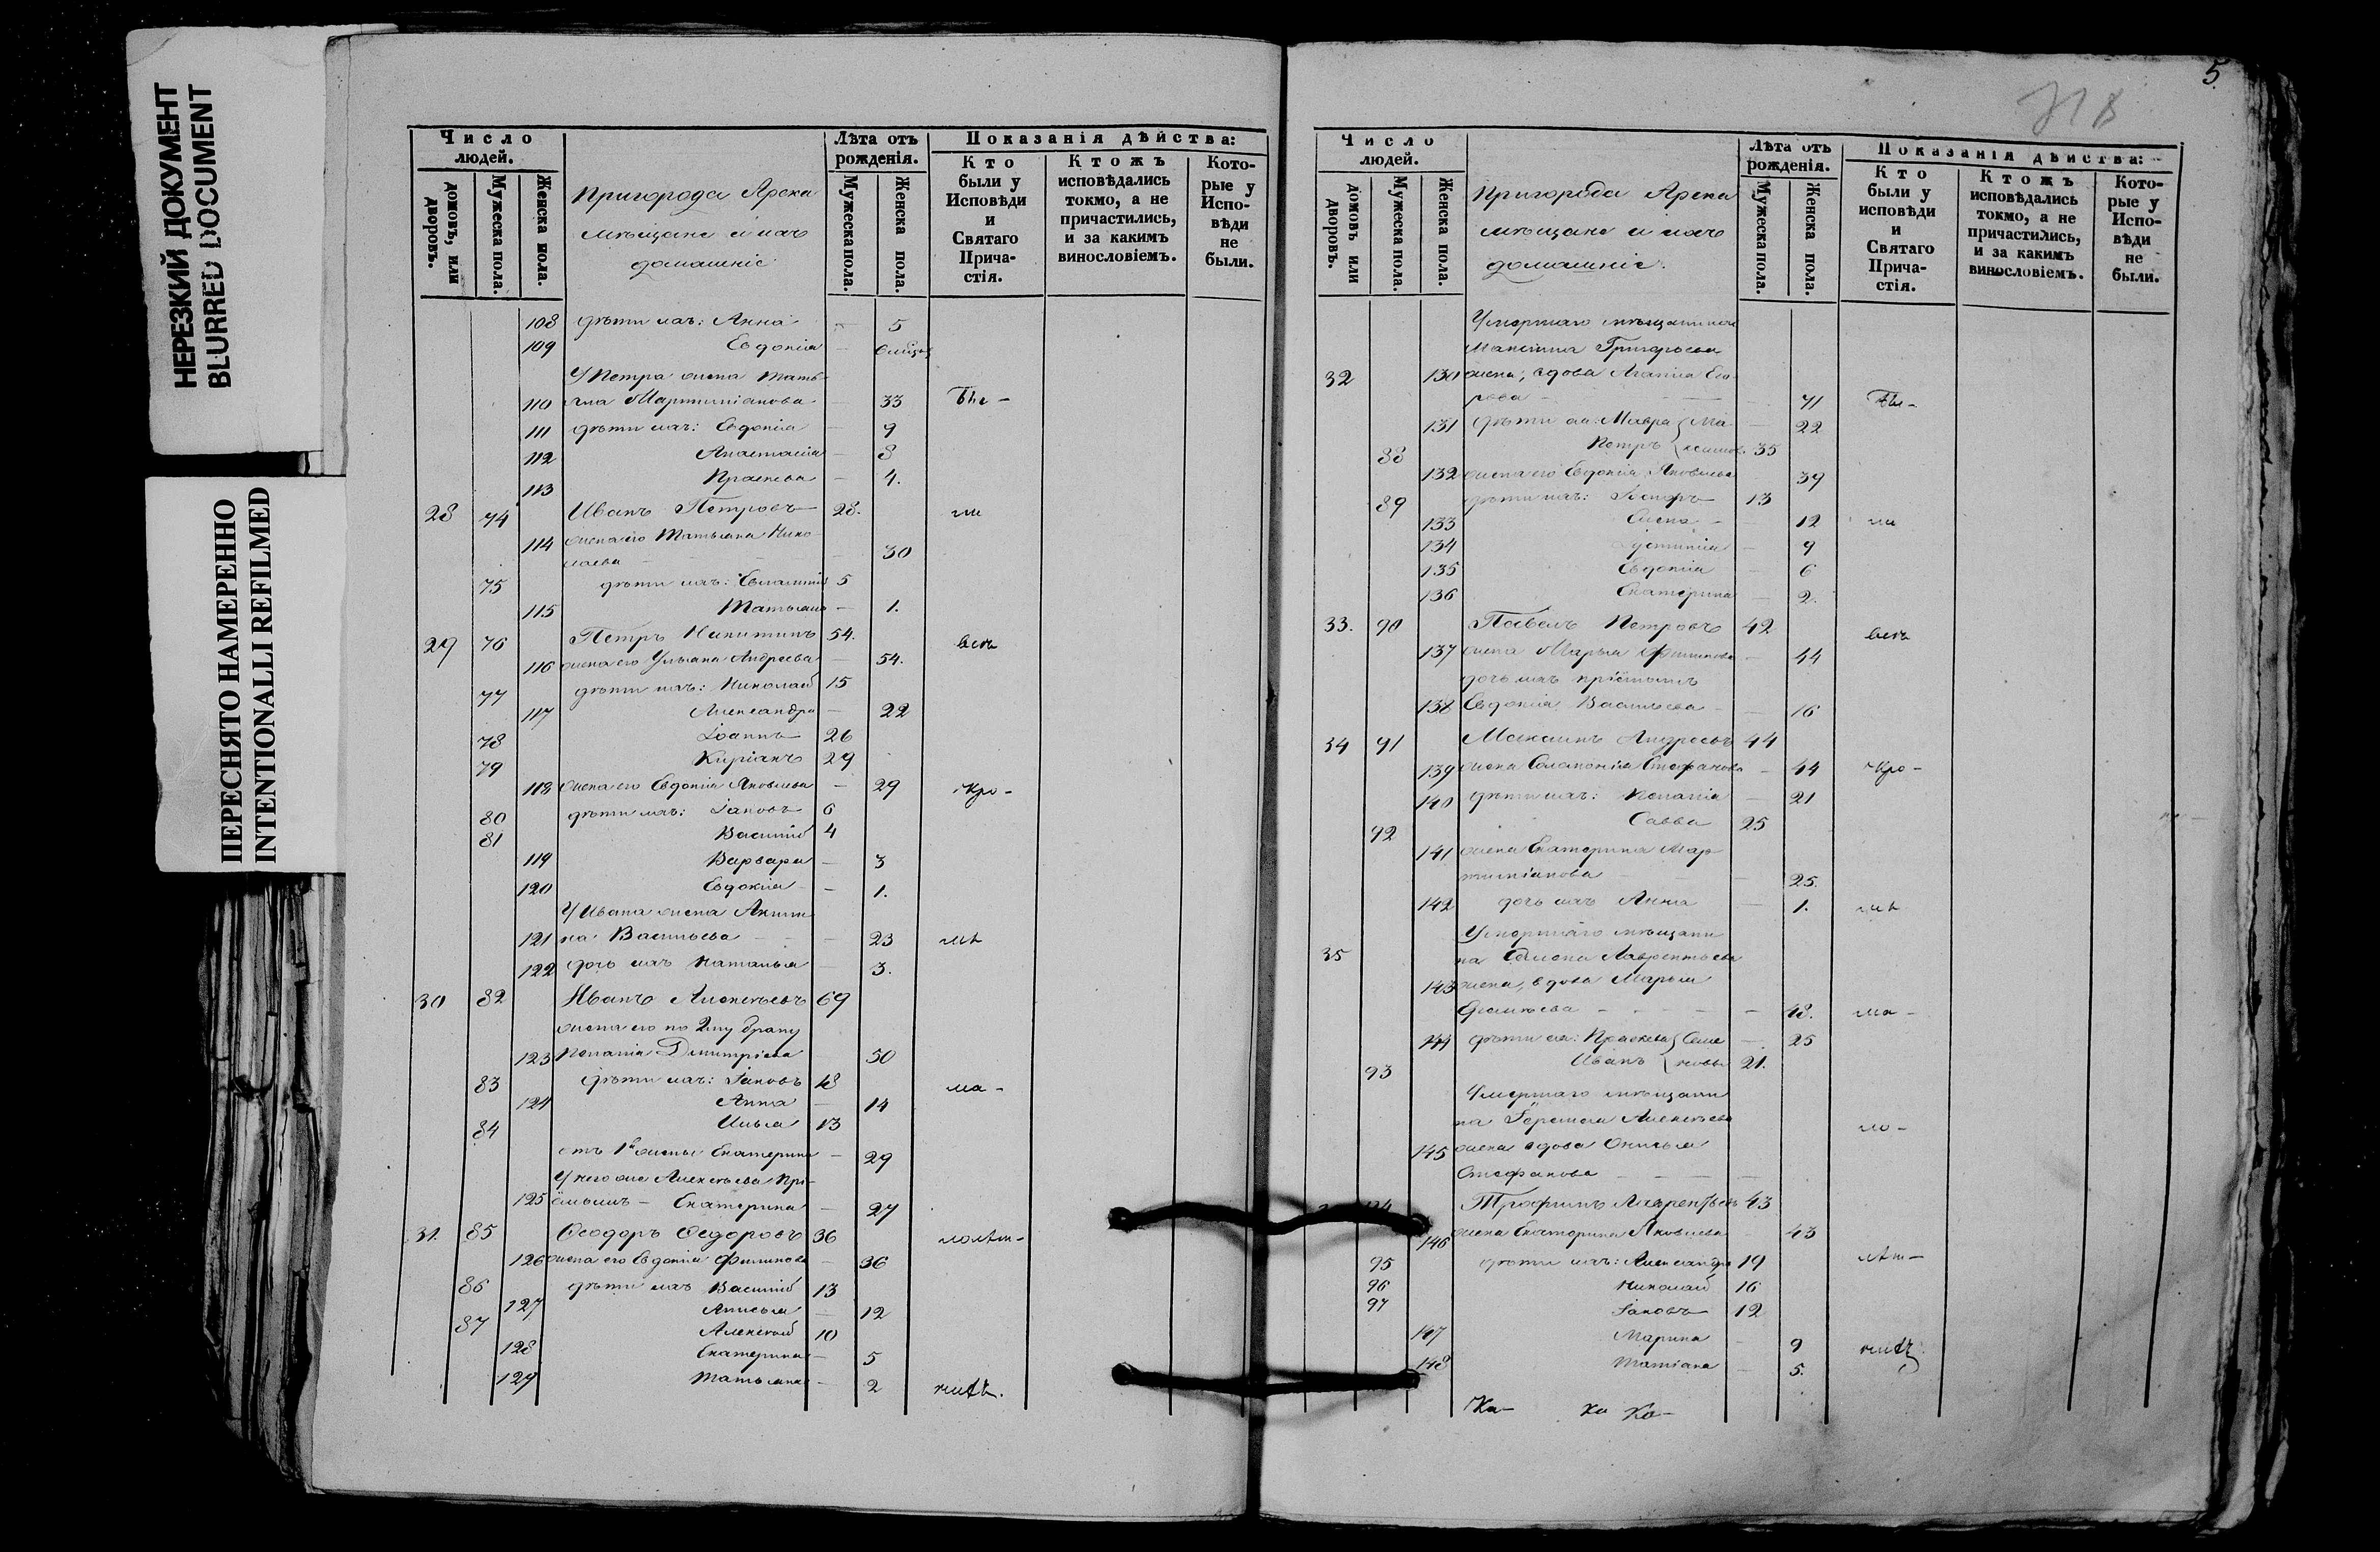 НЕРЕЗКИЙ ДОКУМЕНТ
BLURRED DOCUMENT
ПЕРЕСНЯТО НАМЕРЕННО
INTENTIONALLI REFILMED
Число людей.
домовъ, или дворовъ.
Мужеска пола.
Женска пола.
Пригорода Арска
мѣщане и ихъ
домашніе:
Лѣта отъ рожденія.
Мужеска пола.
Женска пола.
Показанія дѣйства:
Кто были у Исповѣди и Святаго Прича-стія.
Ктожъ исповѣдались токмо, а не причастились, и за какимъ винословіемъ.
Кото-рые у Испо-вѣди не были.
108 дѣти ихъ: Анна — 5
109 Евдокія —
У Петра жена Тать-
110 яна Мартиніанова — 33
111 дѣти ихъ: Евдокія — 9
112 Анастасія — 8
113 Прасковья — 4.
28 74 Иванъ Петровъ 28.
114 жена его Татьяна Нико-
лаева — 30
75 дѣти ихъ: 5
115 Татьяна — 1.
29 76 Петръ Никитинъ 54.
116 жена его Ульяна Андреева — 54.
77 дѣти ихъ: Николай 15
117 Александра — 22
78 Іоаннъ 26
79 Кипріанъ 29
118 жена его Евдокія Яковлева — 29
80 дѣти ихъ: Іаковъ 6
81 Василій 4
119 Варвара — 3
120 Евдокія — 1.
У Ивана жена Акили-
121 на Васильева — 23
122 дочь ихъ Наталья — 3.
30 82 Иванъ Алексѣевъ 69
жена его по 2му браку
123 Димитріева 50
83 дѣти ихъ: Іаковъ 18
124 Анна — 14
84 Илья 13
отъ 1й жены Екатерина — 29
125 Екатерина — 27
31. 85 Ѳеодоръ Ѳедоровъ 36
126 жена его Евдокія Филипова — 36
86 дѣти ихъ Василій 13
127 Анисья — 12
87 Алексѣй 10
128 Екатерина — 5
129 Татьяна — 2
5.
318
Число людей.
домовъ или дворовъ.
Мужеска пола.
Женска пола.
Пригорода Арска
мѣщане и ихъ
домашніе:
Лѣта отъ рожденія.
Мужеска пола.
Женска пола.
Показанія дѣйства:
Кто были у исповѣди и Святаго Прича-стія.
Ктожъ исповѣдались токмо, а не причастились, и за какимъ винословіемъ.
Кото-рые у Испо-вѣди не были.
Умершаго мѣщанина
Максима Григорьева
32 130 жена, вдова Агапія Его-
рова — 71
131 дѣти ея: Мавра Ма- — 22
88 Петръ ксимов. 35
132 жена его Евдокія Яковлева 39
89 дѣти ихъ: 13
133 Елена — 12
134 Іустинія — 9
135 Евдокія — 6
136 Екатерина — 2.
33. 90 Павелъ Петровъ 42
137 жена Марья Филипова — 44
дочь ихъ пріёмышъ
138 Евдокія Васильева — 16
34 91 Максимъ Андреевъ 44
139 жена Соломонія Стефанова — 44
140 дѣти ихъ: — 21
92 Савва 25
141 жена Екатерина Мар-
тиніанова — 25.
142 дочь ихъ Анна — 1.
Умершаго мѣщани-
35 на Лаврентьева
143 жена, вдова Марья
— 48.
144 дѣти ея: Прасковья Семе — 25
93 Иванъ новы 21.
Умершаго мѣщани-
на Алексѣева
145 жена вдова
Стефанова —
Трофимъ Лаврентьевъ 43
146 жена Екатерина Яковлева 43
95 дѣти ихъ: Александръ 19
96 Николай 16
97 Іаковъ 12
147 Марина — 9
148 Татіана — 5.